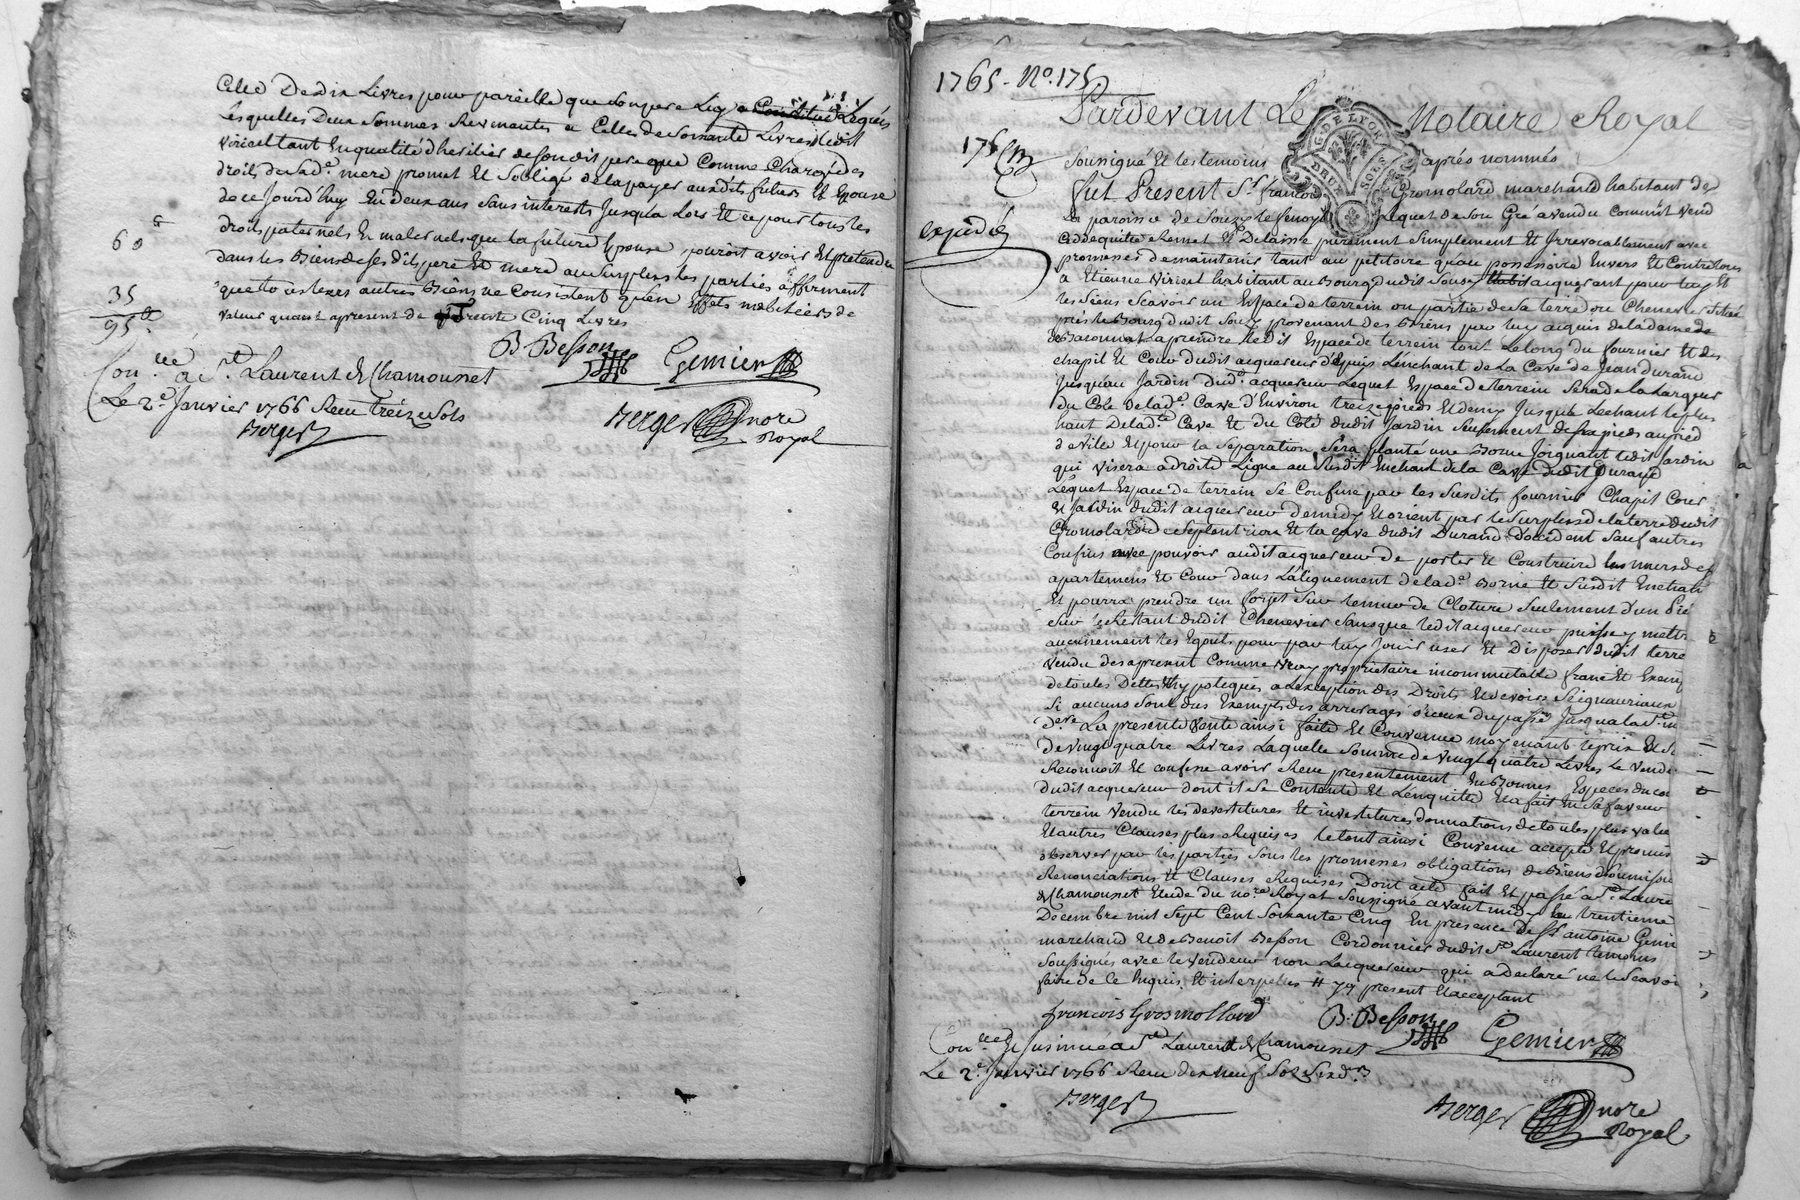 Celle De dix Livres pour pareille que son pere Luy a Constitué Leguéé
Lesquelles Deux Sommes Revenantes a Celle de Soixante Livres Ledit
Viricel tant En qualité d'heritier de son dit pere que Comme Chargé des
droits de sad.e mere promet Et S'oblige de la payer auxdits futurs Et Epouse
de ce Jourd'huy En deux ans Sans interests Jusqu'a Lors Et ce pour tous les
droits paternels Et maternels que la future Epouse pourroit avoir Et pretendre
dans les Biens de ses dits pere Et mere au surplus les parties affirment
que tous Leurs autres Biens ne Consistent qu'en Effets mobiliers de
valeur quant apresent de Trente Cinq Livres
60
35
95
B. Besson Gemier
Con.llé a St. Laurent de Chamousset
Le 2e Janvier 1766 Reçu treize Sols
Berger
Berger nore
Royal
1765 - No. 175
Pardevant Le Notaire Royal
G. DE LYON
DEUX SOLS
Soussigné Et les temoins après nommés
fut Present Sr. francois Gromolard marchand habitant de
La paroisse de Souzy Lequel de Son Gré a vendu Comme il vend
Cede quitte Remet Et Delaisse purement Simplement Et Irrevocablement avec
promesse de maintenir tant au petitoire qu'au possessoire Envers Et Contre tous
expédié
a Etienne Viricel habitant au Bourg dudit Souzy acquerant pour luy Et
les Siens Scavoir un Espace de terrain ou partie de sa terre ou Chenevier Situé
près le Bourg dudit Souzy provenant des Biens par luy acquis de la dame de
Baronnat a prendre Ledit Espace de terrain tout Le long du fournier Et des
chapit Et Cour dudit acquereur depuis L'enchant de la Cave de Jean Durand
Jusqu'au Jardin dud. acquereur Lequel Espace de terrain Sera de la Largeur
du Coté de lad.e Cave d'Environ treize pieds Et demy Jusqu'a L'enchant le plus
haut De lad.e Cave Et du Coté dudit Jardin Seulement de six pieds au pied
de Ville Et pour la Separation Sera planté une Borne Joignant Ledit Jardin
qui visera a droite Ligne au Susdit Enchant de la Cave dudit Durand
Lequel Espace de terrain Se Confine par les Susdits fournier Chapit Cour
Et Jardin dudit acquereur de midy Et orient par le Surplus de la terre dudit
Gromolard de Septentrion Et la Cave dudit Durand d'occident Sauf autres
Confins avec pouvoir audit acquereur de porter Et Construire Les murs de ses
apartemens Et Cour dans L'alignement de lad.e Borne Et Susdit Enchant
Et pourra prendre un forjet Sur Cloture Seulement d'un pié
Sur le Restant dudit Chenevier Sans que Ledit acquereur puisse y mettre
aucunement les Egouts pour par luy Jouir user Et Disposer dudit terre
vendu des apresent Comme vray proprietaire incommutable franc Et Exemp
de toutes Dettes Hypoteques a L'exception des Droits Et devoirs Seigneuriaux
Si aucuns Sont dus Exempts des arrerages d'iceux du passé Jusqu'a
La presente vente ainsi faite Et Convenue moyenant le prix Et
de vingt quatre Livres Laquelle Somme de vingt quatre Livres Le vende
Reconnoit Et confesse avoir Reçu presentement En Bonnes Especes du cou
dudit acquereur dont il Se Contente Et L'enquitte Et a fait En Sa faveur
terrain vendu les devestitures Et investitures donnations de toutes plus value
Et autres Clauses plus Requises Le tout ainsi Convenu accepté Et promis
observer par les parties Sous les promesses obligations de Biens Soumission
Renonciations Et Clauses Requises Dont acte fait Et passé a St. Laure
de Chamousset Etude du no.re Royal Soussigné avant midy Le trentieme
Decembre mil Sept Cent Soixante Cinq En presence de Sr. antoine Gemi
marchand Et de Benoit Besson Cordonnier dudit St. Laurent temoins
Soussignés avec le vendeur non Lacquereur qui a declaré ne le Scavoi
faire de ce Enquis Et interpellés present Et acceptant
francois Gromollard B. Besson Gemier
Con.llé Et Insinué a St. Laurent de Chamousset
Le 2e Janvier 1766 Reçu dix neuf Sols Six d.rs
Berger
Berger nore
Royal